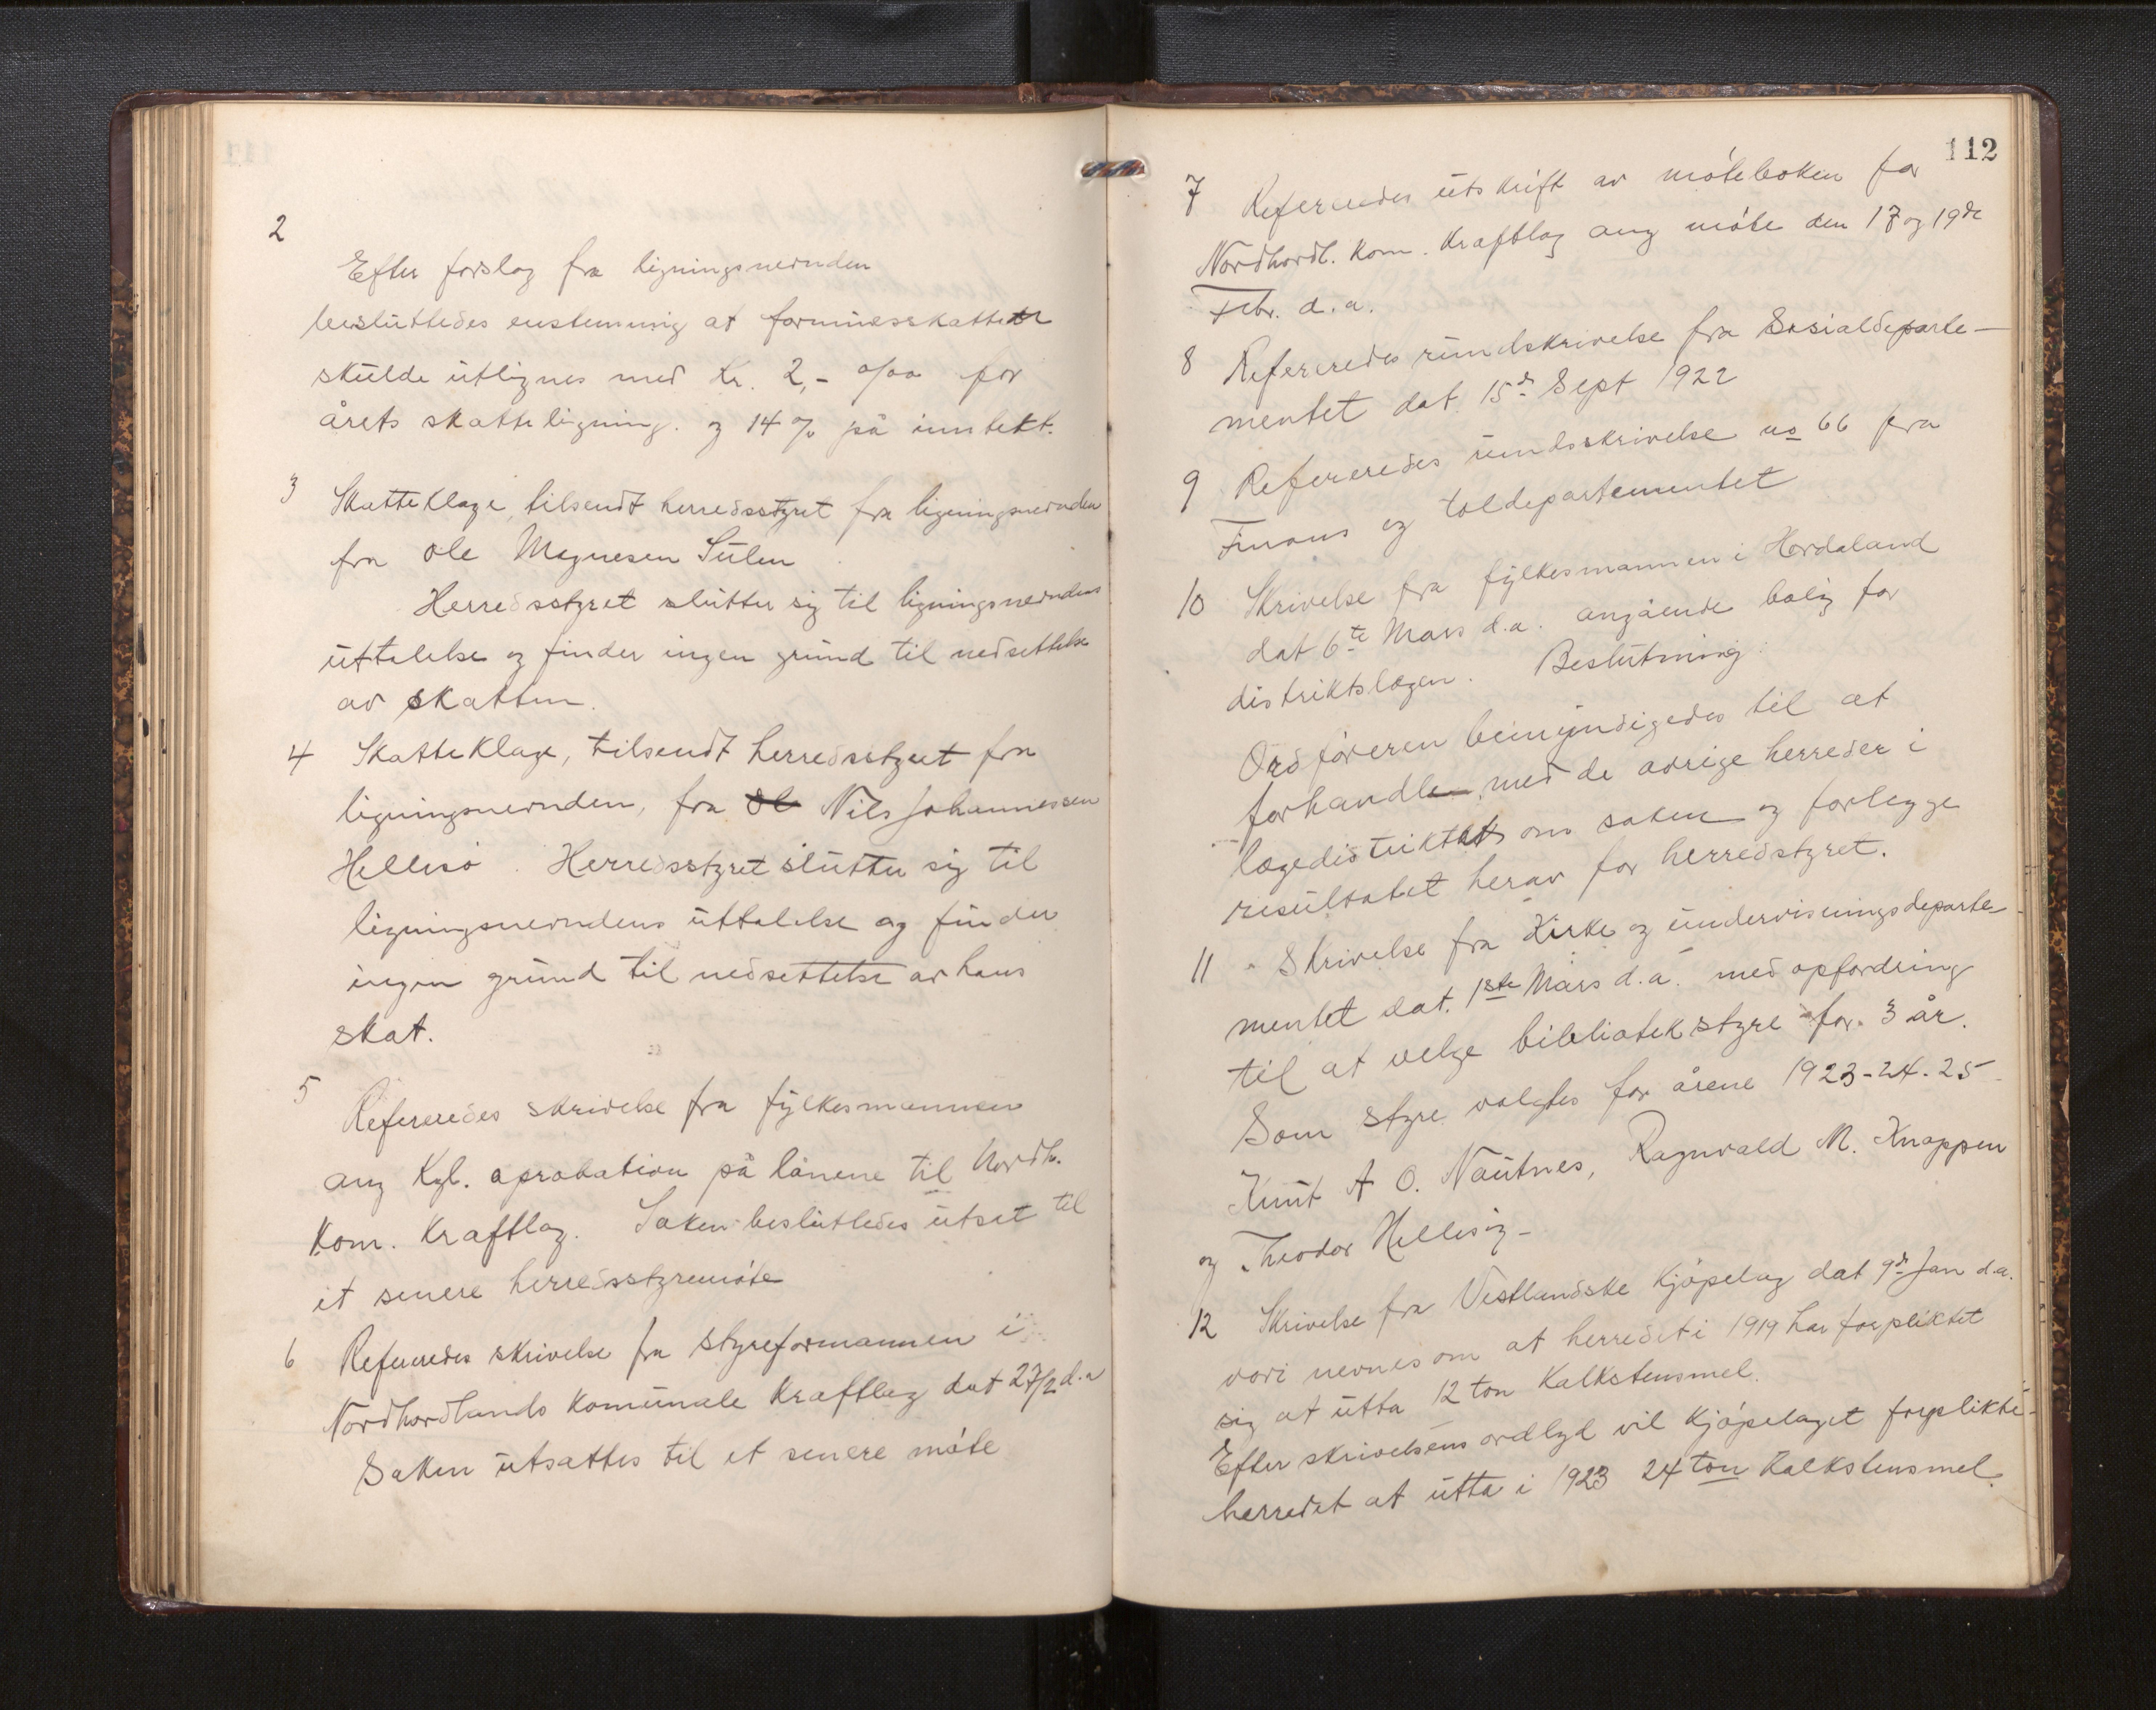 2
Efter forslag fra ligningsnevnden
besluttedes enstemmig at formuesskatten
skulde utlignes med Kr. 2,- o/oo for
årets skatteligning. og 14 % på inntekt.
3 Skatteklage, tilsendt herredsstyret fra ligningsnevnden
fra Ole Magnesen Sulen
Herredsstyret slutter sig til ligningsnevndens
uttalelse og finder ingen grund til nedsettelse
av skatten.
4 Skatteklage, tilsendt herredsstyret fra
ligningsnevnden, fra Ol Nils Johannessen
Hellisö. Herredsstyret slutter sig til
ligningsnevndens uttalelse og finder
ingen grund til nedsettelse av hans
skat.
5 Refereredes skrivelse fra fylkesmannen
ang Kgl. aprobation på lånene til Nordh.
Kom. Kraftlag. Saken besluttedes utsat til
et senere herredsstyremöte
6 Refereredes skrivelse fra styreformannen i
Nordhordlands Komunale Kraftlag dat 27/2 d.a
Saken utsattes til et senere möte
112
7 Refereredes utskrift av möteboken for
Nordhordl. Kom. Kraftlag ang möte den 17 og 19de
Febr. d.a.
8 Refereredes rundskrivelse fra Sosialdeparte-
mentet dat. 15de Sept 1922
9 Refereredes rundskrivelse no 66 fra
Finans og toldepartementet
10 Skrivelse fra fylkesmannen i Hordaland
dat 6te Mars d.a. angående bolig for
distriktslægen. Beslutning:
Ordföreren bemyndigedes til at
forhandle med de övrige herreder i
lægedistriktet om saken og forlegge
resultatet herav for herredstyret.
11 Skrivelse fra Kirke og undervisningsdeparte-
mentet dat. 1ste Mars d.a. med opfordring
til at velge bibliotekstyre for 3 år.
Som styre valgtes for årene 1923-24-25
Knut A O. Nautnes, Ragnvald M. Knappen
og Theodor Hellisöy-
12 Skrivelse fra Vestlandske Kjöpelag dat 9de Jan d.a.
vori nevnes om at herredet i 1919 har forpliktet
sig at utta 12 ton Kalkstensmel.
Efter skrivelsens ordlyd vil Kjöpelaget forplikte
herredet at utta i 1923 24 ton Kalkstensmel.